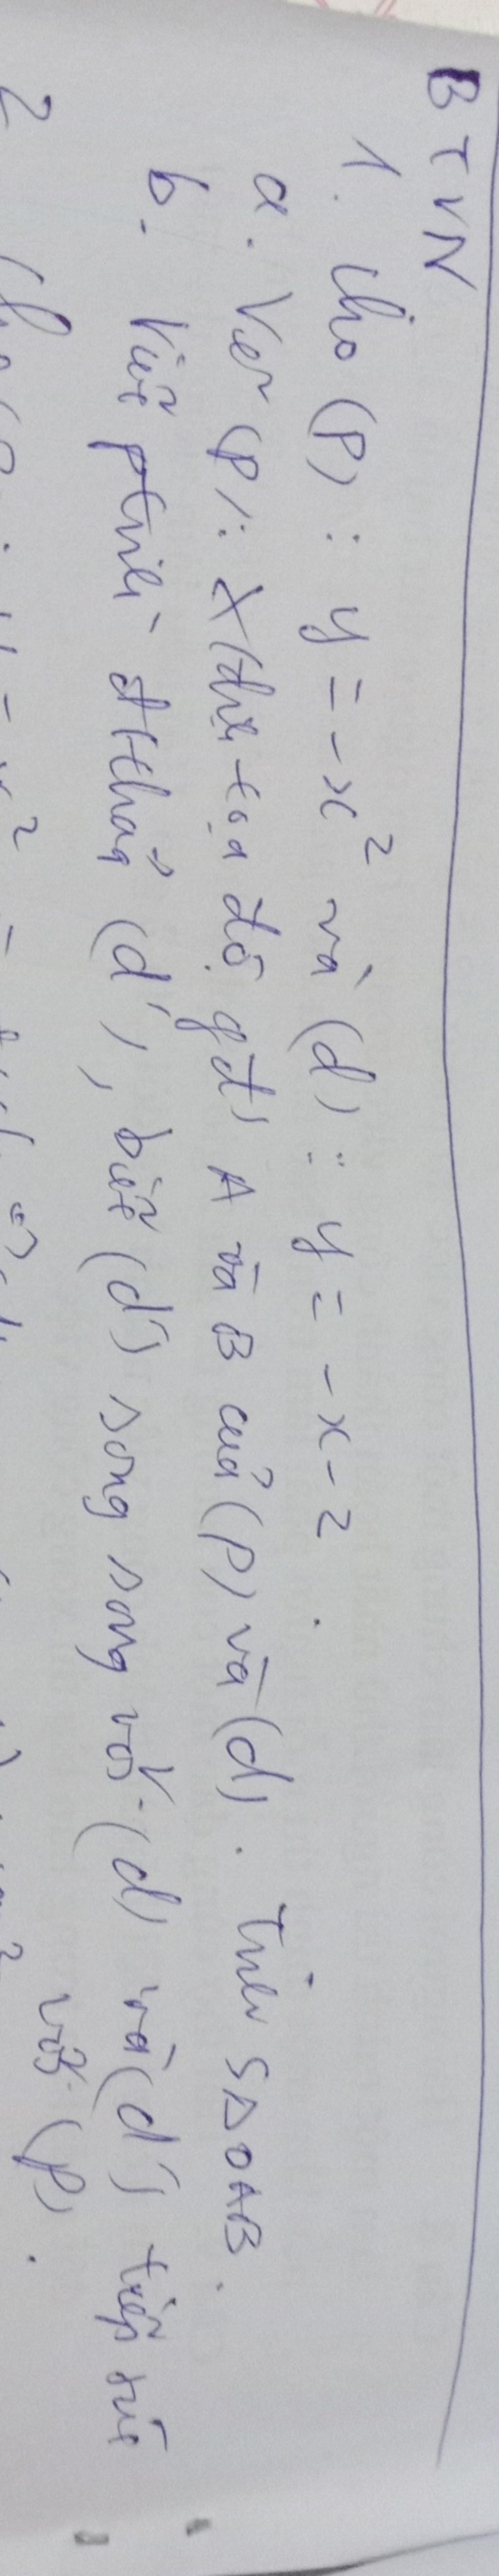 BTVN
1. Cho (P): y = -x² và (d): y = -x-2.
a. Vẽ (P). Xđịnh tọa độ gđ A và B của (P) và (d). Tính SΔOAB.
b. Viết ptrình đt thẳng (d'), biết (d') song song với (d) và (d') tiếp xúc
với (P).
2